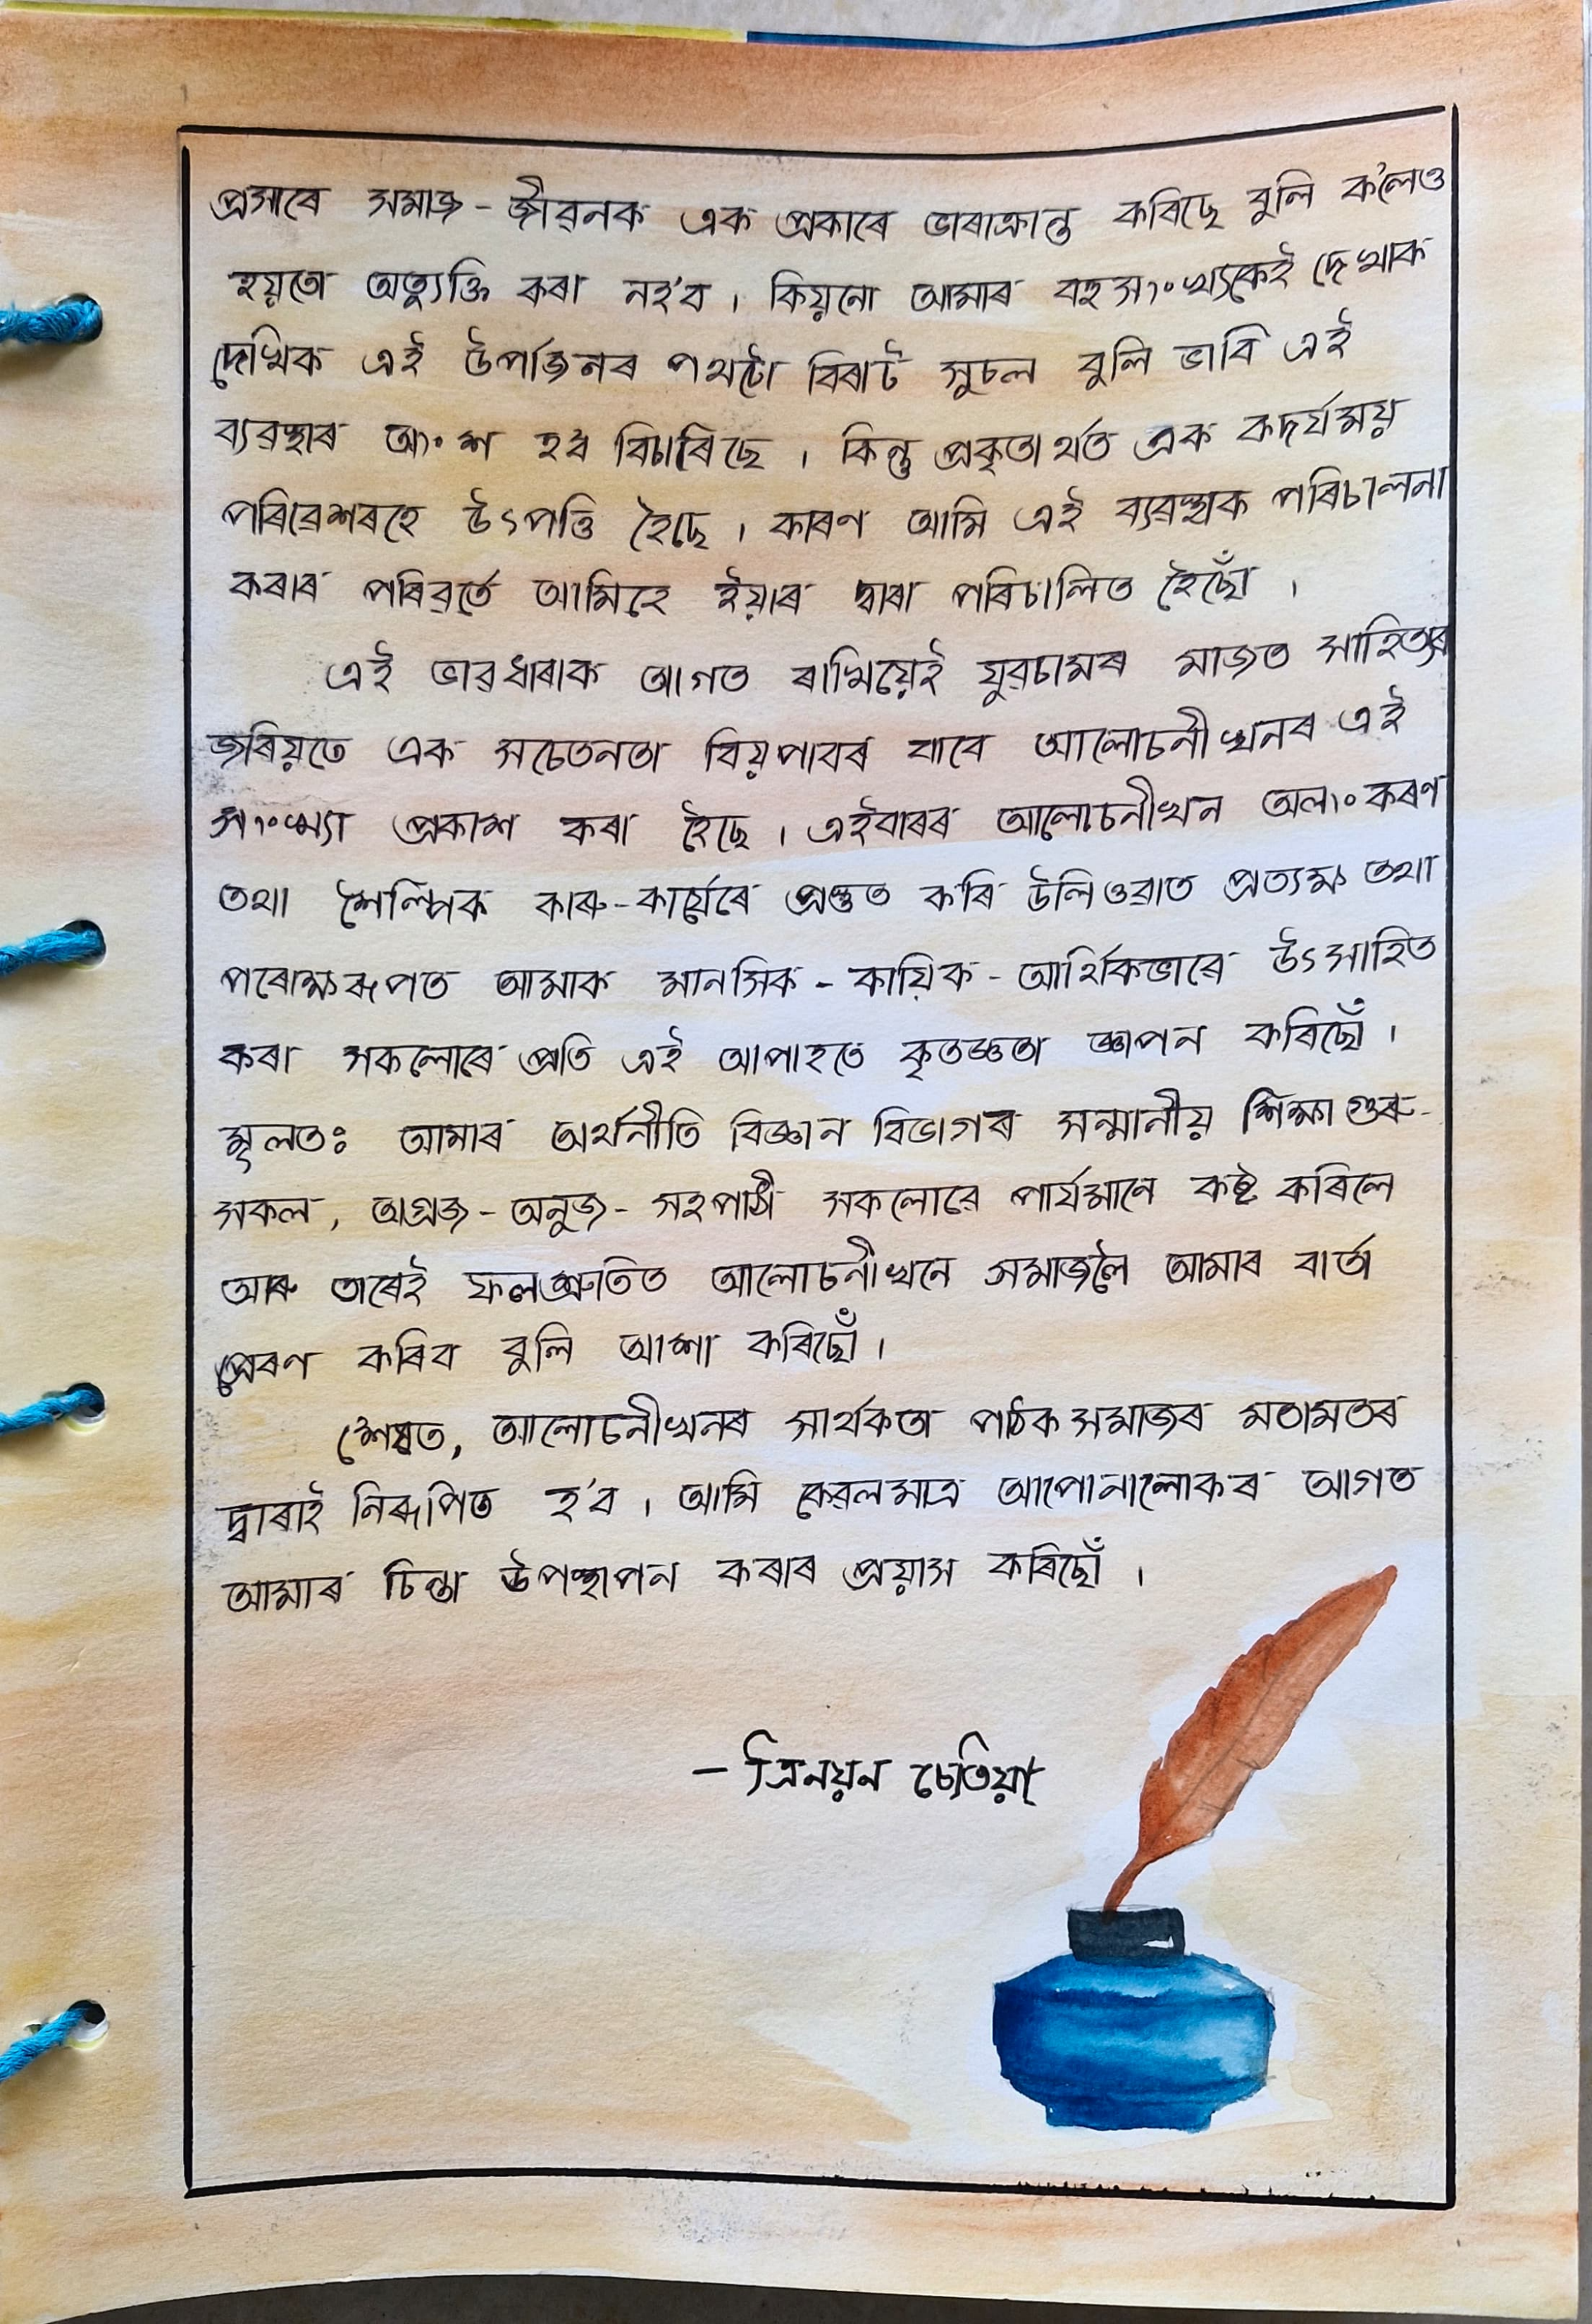 প্ৰসাৰে সমাজ-জীৱনক এক প্ৰকাৰে ভাৰাক্ৰান্ত কৰিছে বুলি ক'লেও
হয়তো অত্যুক্তি কৰা নহ'ব । কিয়নো আমাৰ বহুসংখ্যকেই দেখাক
দেখিক এই উপাৰ্জনৰ পথটো বিৰাট সুচল বুলি ভাবি এই
ব্যৱস্থাৰ অংশ হ'ব বিচাৰিছে । কিন্তু প্ৰকৃতাৰ্থত এক কদৰ্যময়
পৰিৱেশৰহে উৎপত্তি হৈছে । কাৰণ আমি এই ব্যৱস্থাক পৰিচালনা
কৰাৰ পৰিৱৰ্তে আমিহে ইয়াৰ দ্বাৰা পৰিচালিত হৈছোঁ ।
এই ভাৱধাৰাক আগত ৰাখিয়েই যুৱচামৰ মাজত সাহিত্যৰ
জৰিয়তে এক সচেতনতা বিয়পাবৰ বাবে আলোচনীখনৰ এই
সংখ্যা প্ৰকাশ কৰা হৈছে । এইবাৰৰ আলোচনীখন অলংকৰণ
তথা শৈল্পিক কাৰু-কাৰ্যেৰে প্ৰস্তুত কৰি উলিওৱাত প্ৰত্যক্ষ তথা
পৰোক্ষৰূপত আমাক মানসিক-কায়িক-আৰ্থিকভাৱে উৎসাহিত
কৰা সকলোৰে প্ৰতি এই আপাহতে কৃতজ্ঞতা জ্ঞাপন কৰিছোঁ ।
মূলতঃ আমাৰ অৰ্থনীতি বিজ্ঞান বিভাগৰ সন্মানীয় শিক্ষাগুৰু-
সকল, অগ্ৰজ-অনুজ-সহপাঠী সকলোৱে পাৰ্যমানে কষ্ট কৰিলে
আৰু তাৰেই ফলশ্ৰুতিত আলোচনীখনে সমাজলৈ আমাৰ বাৰ্তা
প্ৰেৰণ কৰিব বুলি আশা কৰিছোঁ ।
শেষত, আলোচনীখনৰ সাৰ্থকতা পাঠক সমাজৰ মতামতৰ
দ্বাৰাই নিৰূপিত হ'ব । আমি কেৱলমাত্ৰ আপোনালোকৰ আগত
আমাৰ চিন্তা উপস্থাপন কৰাৰ প্ৰয়াস কৰিছোঁ ।
– ত্ৰিনয়ন চেতিয়া